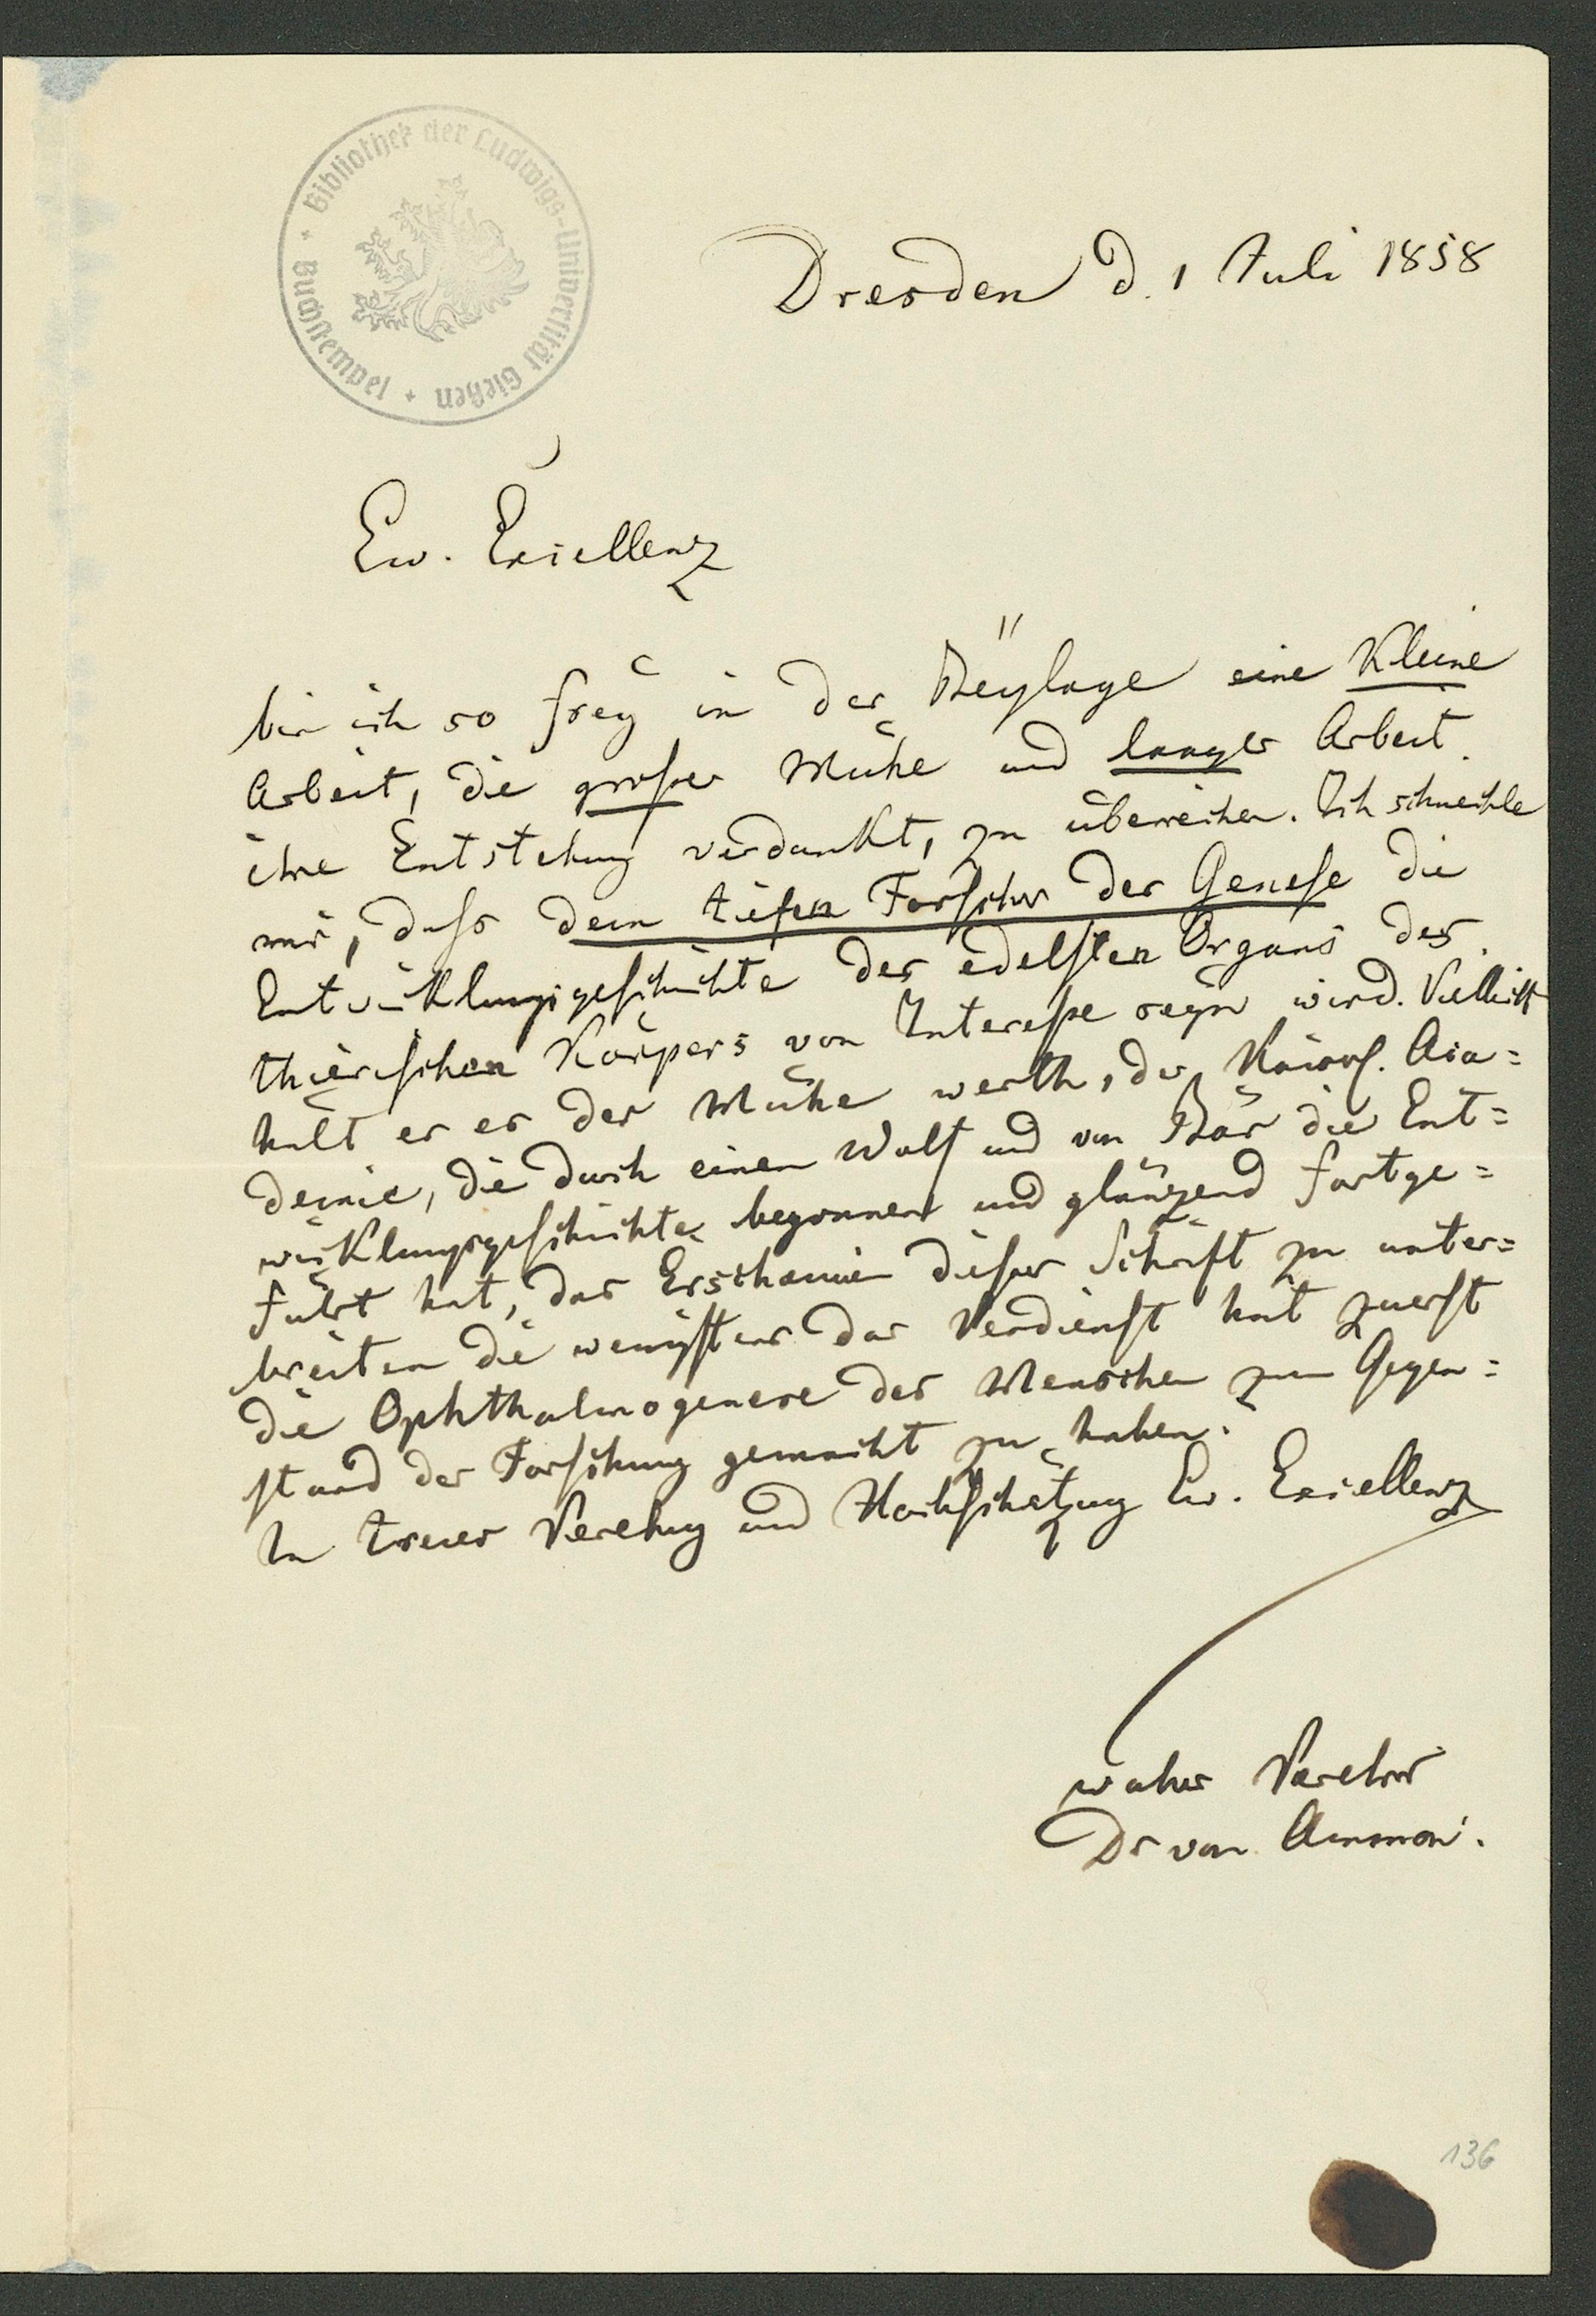 Bibliothek der Ludwigs-Universität Gießen
Buchstempel
Dresden d. 1 Juli 1858
Ew. Excellenz
bin ich so frey in der Beylage eine Kleine
Arbeit, die großer Mühe und langer Arbeit
ihre Entstehung verdankt, zu überreichen. Ich schmeichle
mir, dass dem tiefen Forscher der Genese die
Entwicklungsgeschichte des edelsten Organs des
thierischen Körpers von Interesse seyn wird. Vielleicht
hält er es der Mühe werth, der Kaiserl. Aca=
demie, die durch einen Wolf und von Bär die Ent=
wicklungsgeschichte begonnen und glänzend fortge=
führt hat, das Erscheinen dieser Schrift zu unter=
breiten die wenigstens das Verdienst hat zuerst
die Ophthalmogenese des Menschen zum Gegen=
stand der Forschung gemacht zu haben.
In treuer Verehrung und Hochschätzung Ew. Excellenz
wahrer Verehrer
Dr von Ammon.
136